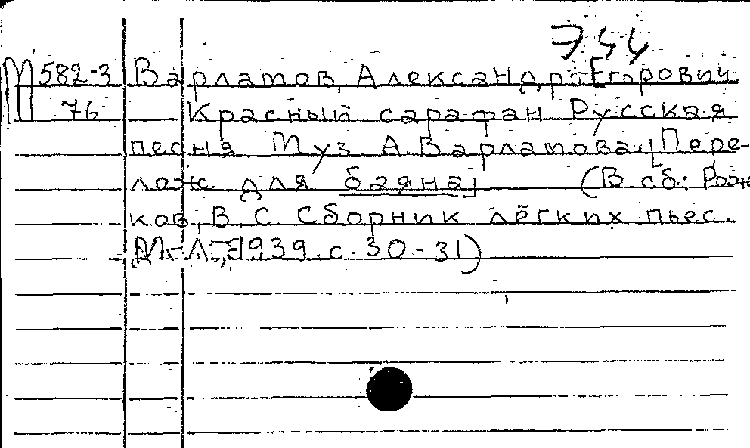 Э54
М 582-3 Варламов, Александр Егорович
76 Красный сарафан Русская
песня Муз А. Варламова [Пере-
лож для баяна] (В сб.: Рож
ков, В. С. Сборник лёгких пьес.
М.-Л., 1939. с. 30-31)